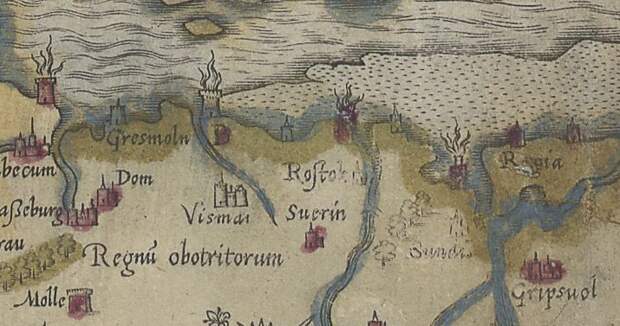 Gresmoln
becum
Dom
Rostok
Rugia
aßeburg
Vismar
Suerin
Sundis
rau
Regnū obotritorum
Molle
Gripsuol